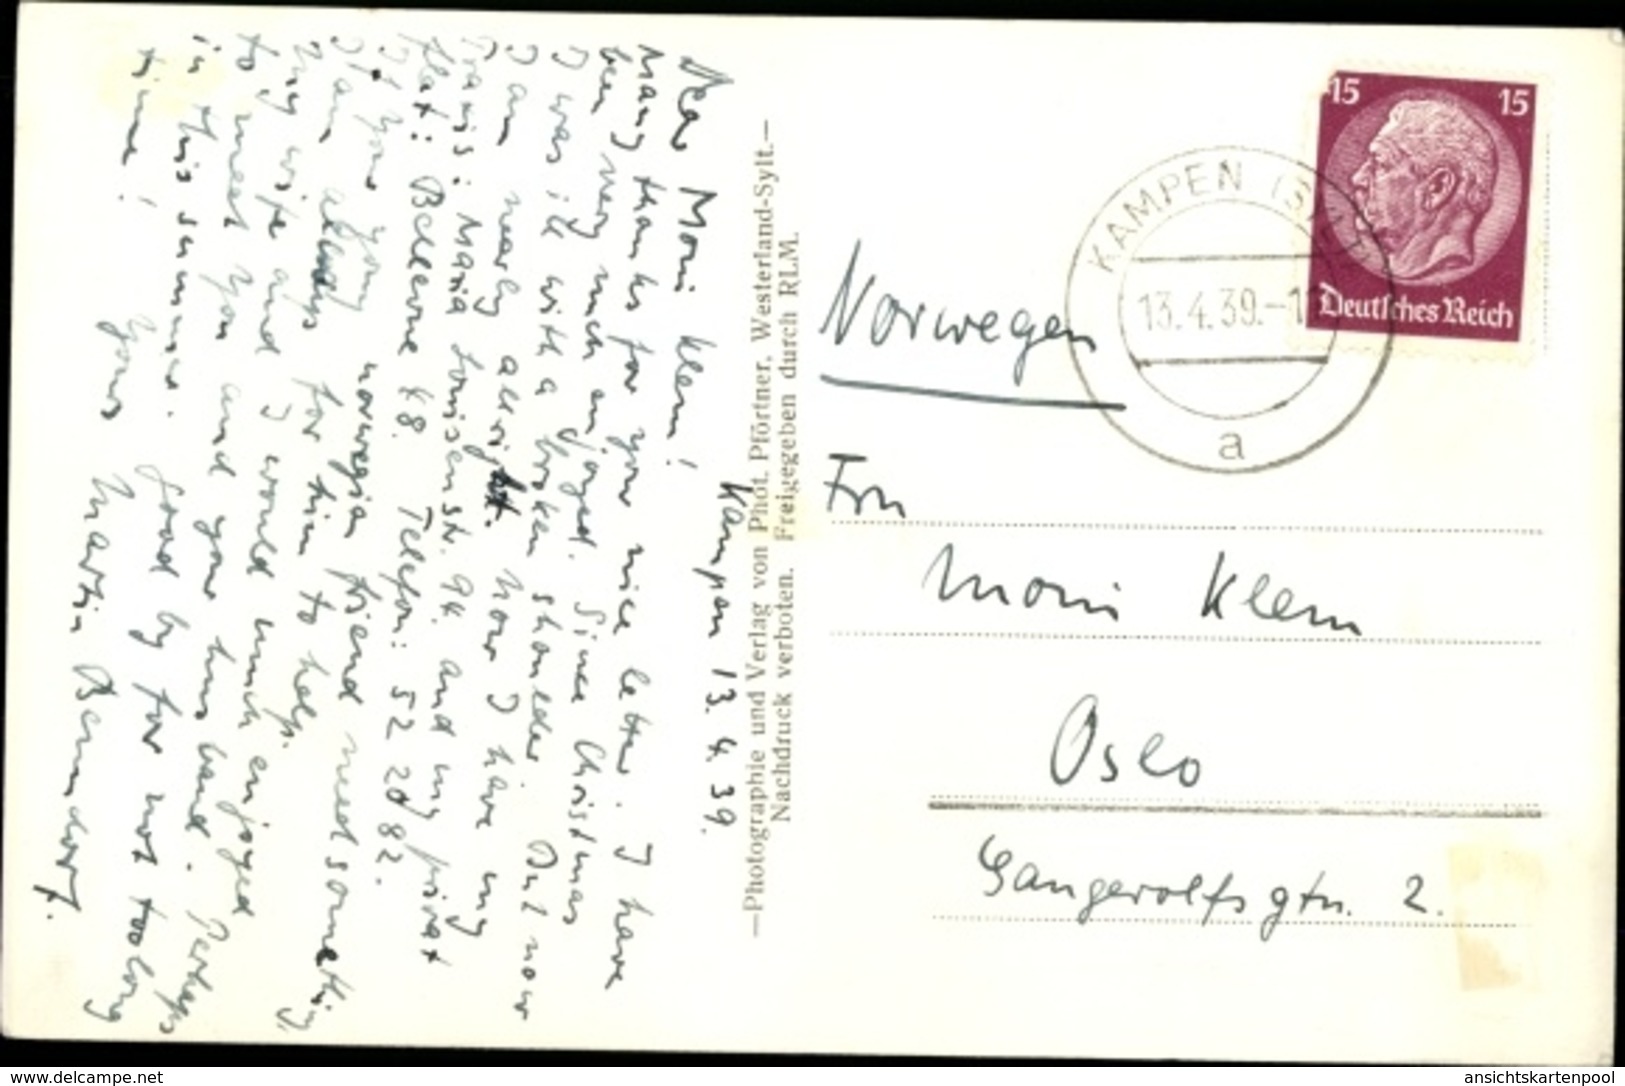 Kampen 13. 4. 39.
Dear Moni Klem!
Many thanks for your nice letter. I have
been very much enjoyed. Since Christmas
I was ill with a broken shoulder. But now
I am nearly allright. Now I have my
Praxis: Maria Louisenstr. 94. and my privat
flat: Bellevue 48. Telefon: 52 20 82.
If your young norwegian friend need something,
I am allways for him to help.
My wife and I would much enjoyed
to meet you and your husband. Perhaps
in this summer. Good by for not too long
time!
Yours Martin Bermendorf.
—Photographie und Verlag von Phot. Pförtner, Westerland-Sylt.—
Nachdruck verboten. Freigegeben durch RLM.
15 15
Deutsches Reich
KAMPEN (SYLT)
13.4.39.-1
a
Norwegen
Frn
Moni Klem
Oslo
Gangerolfsgtn. 2.
www.delcampe.net ansichtskartenpool